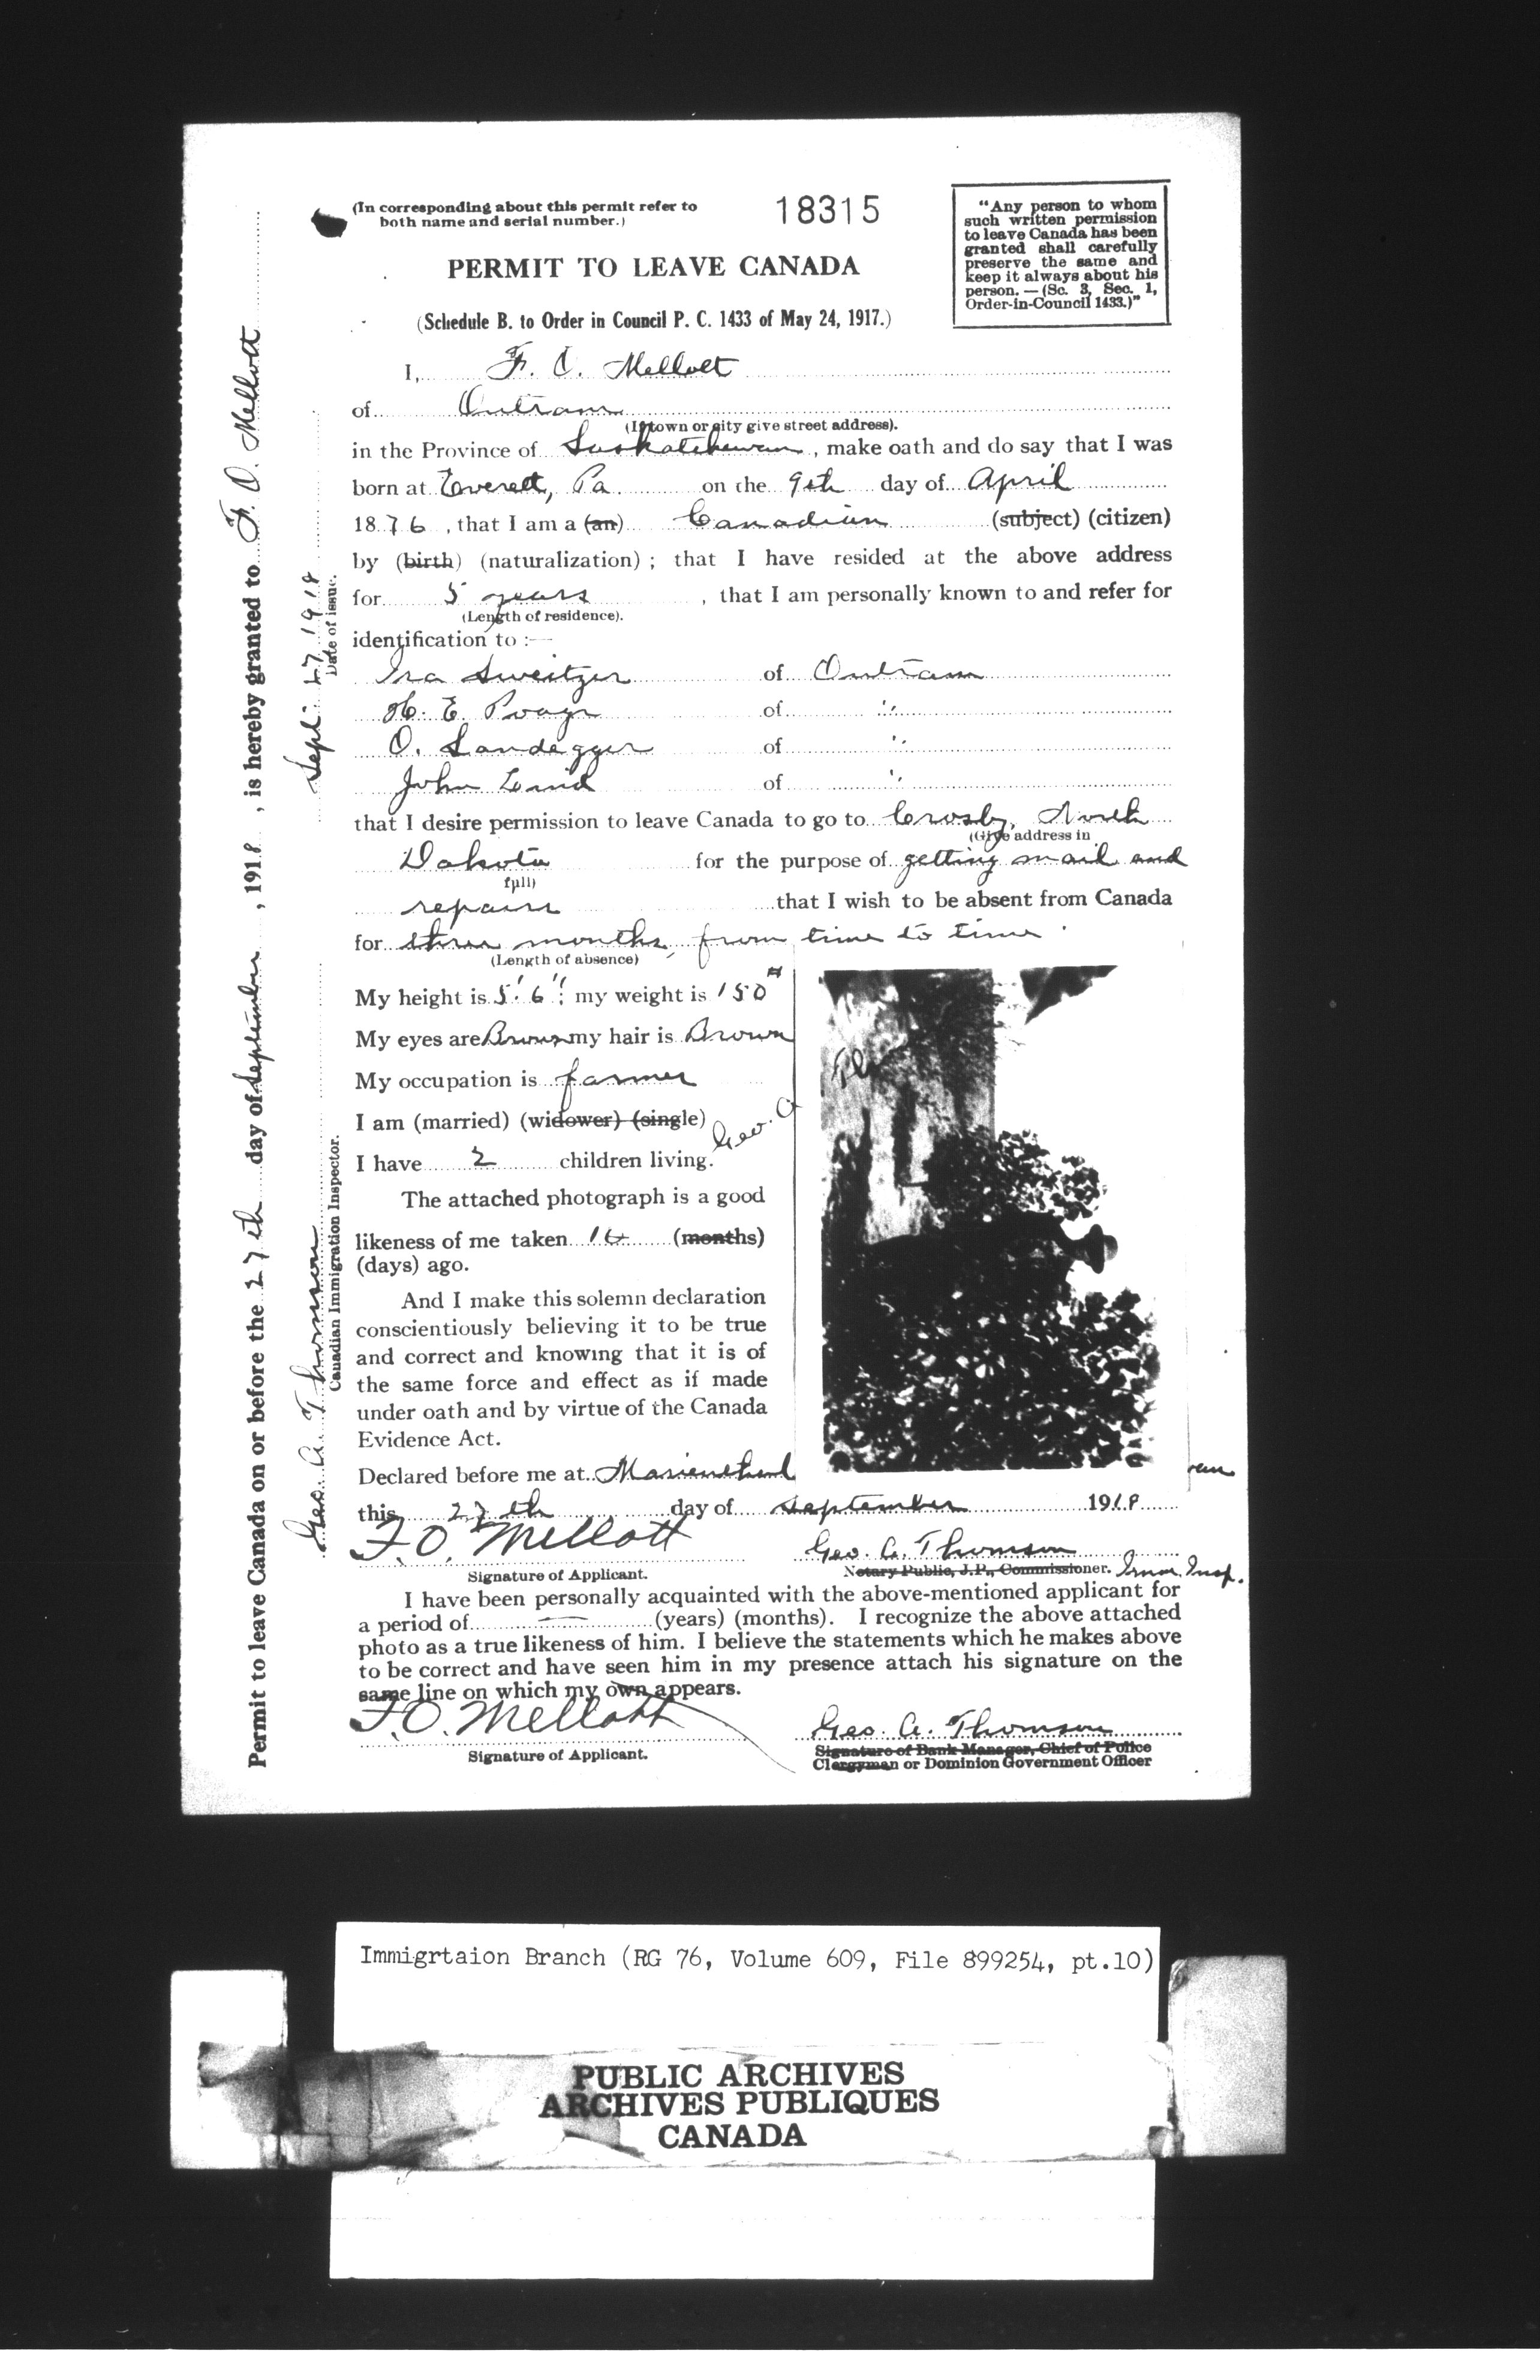 (In corresponding about this permit refer to
both name and serial number.)
18315
"Any person to whom
such written permission
to leave Canada has been
granted shall carefully
preserve the same and
keep it always about his
person. — (Sc. 3, Sec. 1,
Order-in-Council 1433.)"
PERMIT TO LEAVE CANADA
(Schedule B. to Order in Council P. C. 1433 of May 24, 1917.)
I, F. O. Mellott
of Outram
(If town or city give street address).
in the Province of Saskatchewan, make oath and do say that I was
born at Everett, Pa on the 9th day of April
1876, that I am a (an) Canadian (subject) (citizen)
by (birth) (naturalization) ; that I have resided at the above address
for 5 years, that I am personally known to and refer for
(Length of residence).
identification to :—
Ira Sweitzer of Outram
H. E. of "
O. Landegger of "
John of "
that I desire permission to leave Canada to go to Crosby, North
(Give address in
Dakota for the purpose of getting mail and
full)
repairs that I wish to be absent from Canada
for three months, from time to time.
(Length of absence)
My height is 5' 6"; my weight is 150#
My eyes are Brown my hair is Brown
My occupation is farmer
I am (married) (widower) (single)
Geo. A
I have 2 children living.
The attached photograph is a good
likeness of me taken (months)
(days) ago.
And I make this solemn declaration
conscientiously believing it to be true
and correct and knowing that it is of
the same force and effect as if made
under oath and by virtue of the Canada
Evidence Act.
Declared before me at
this 27th day of September 1918
F. O. Mellott Geo. A. Thomson
Signature of Applicant. Notary Public, J.P., Commissioner. Imm. Insp.
I have been personally acquainted with the above-mentioned applicant for
a period of — (years) (months). I recognize the above attached
photo as a true likeness of him. I believe the statements which he makes above
to be correct and have seen him in my presence attach his signature on the
same line on which my own appears.
F. O. Mellott Geo. A. Thomson
Signature of Applicant. Signature of Bank Manager, Chief of Police
Clergyman or Dominion Government Officer
Permit to leave Canada on or before the 27th day of September, 1918, is hereby granted to F. O. Mellott
Geo. A. Thomson Sept. 27 1918
Canadian Immigration Inspector. Date of issue.
Immigrtaion Branch (RG 76, Volume 609, File 899254, pt.10)
PUBLIC ARCHIVES
ARCHIVES PUBLIQUES
CANADA